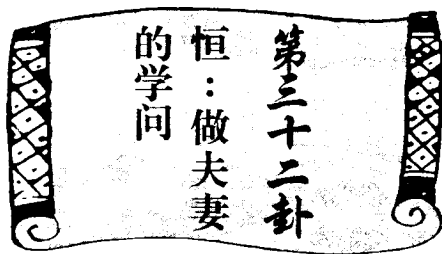 第三十二卦
恒：做夫妻
的学问